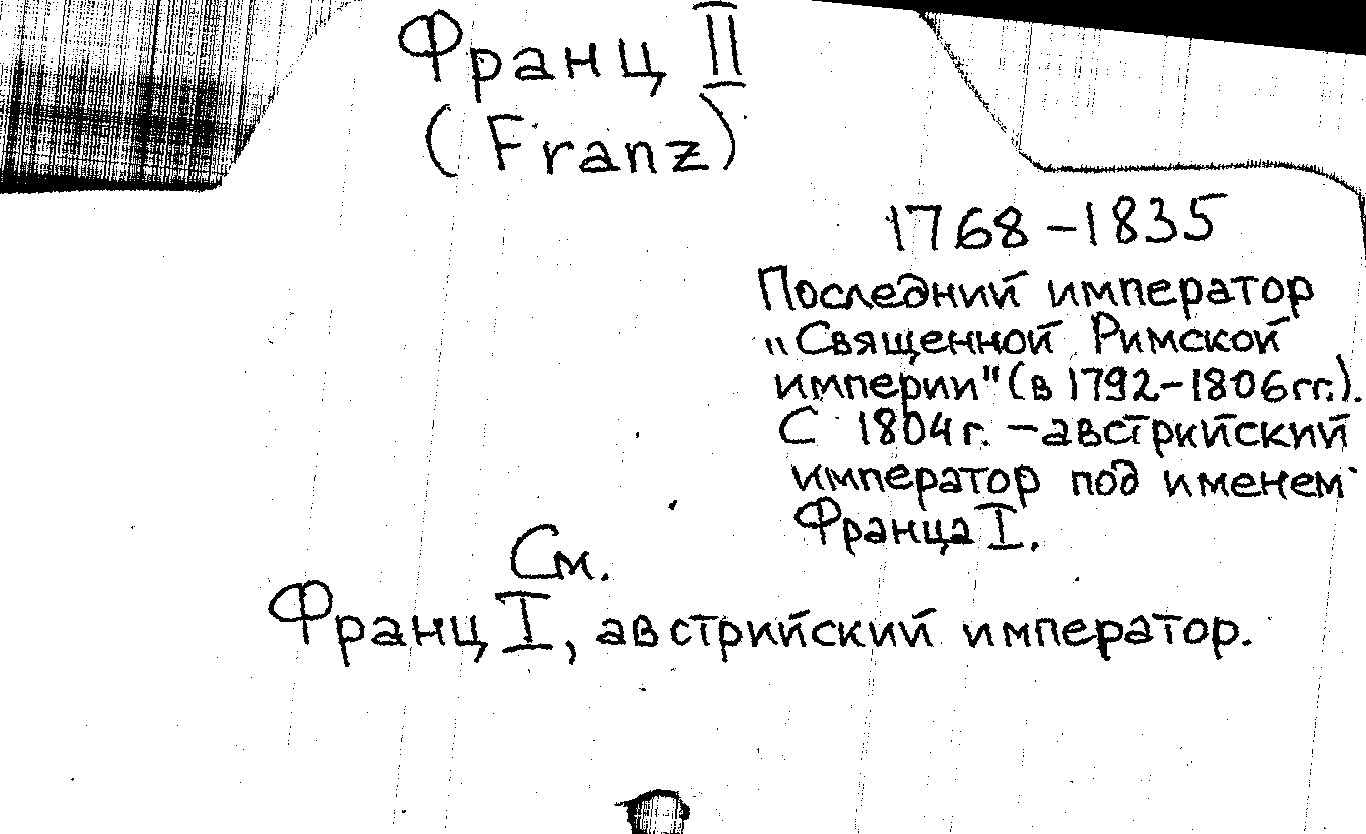 Франц II
(Franz)
1768-1835
Последний император
"Священной Римской
империи" (в 1792-1806гг.).
С 1804г. - австрийский
император под именем
Франца I.
См.
Франц I, австрийский император.